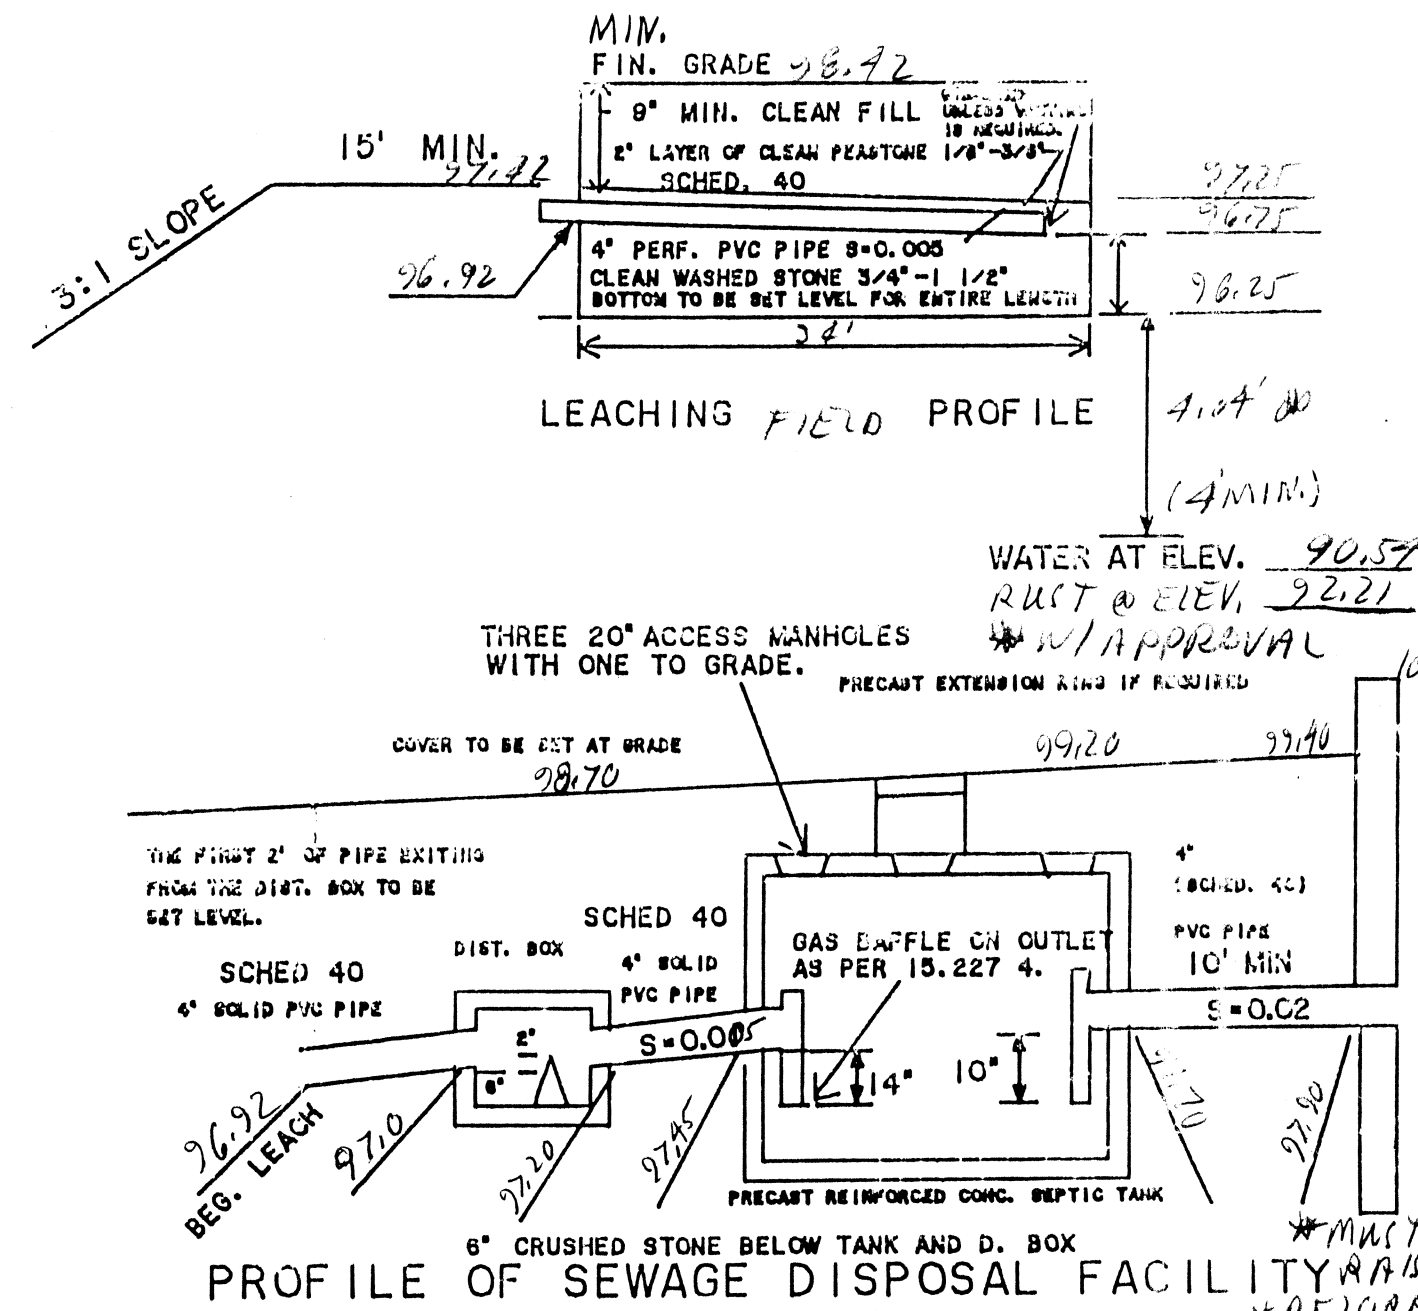 MIN.
FIN. GRADE 98.42
9" MIN. CLEAN FILL
UNLESS VENTING
IS REQUIRED.
2" LAYER OF CLEAN PEASTONE 1/8"-3/8"
SCHED. 40
15' MIN.
97.42
3:1 SLOPE
97.25
96.75
96.92
4" PERF. PVC PIPE S=0.005
CLEAN WASHED STONE 3/4"-1 1/2"
BOTTOM TO BE SET LEVEL FOR ENTIRE LENGTH
96.25
34'
LEACHING FIELD PROFILE
4.04'
(4' MIN.)
WATER AT ELEV.
RUST @ ELEV. 92.21
* W/ APPROVAL
THREE 20" ACCESS MANHOLES
WITH ONE TO GRADE.
PRECAST EXTENSION RING IF REQUIRED
COVER TO BE SET AT GRADE
98.70
99.20
99.40
THE FIRST 2' OF PIPE EXITING
FROM THE DIST. BOX TO BE
SET LEVEL.
SCHED 40
4" SOLID PVC PIPE
DIST. BOX
SCHED 40
4" SOLID
PVC PIPE
S=0.005
GAS BAFFLE ON OUTLET
AS PER 15.227 4.
4"
(SCHED. 40)
PVC PIPE
10' MIN
S=0.02
2"
6"
14"
10"
96.92
BEG. LEACH
97.0
97.20
97.45
97.70
97.90
PRECAST REINFORCED CONC. SEPTIC TANK
6" CRUSHED STONE BELOW TANK AND D. BOX
* MUST
PROFILE OF SEWAGE DISPOSAL FACILITY